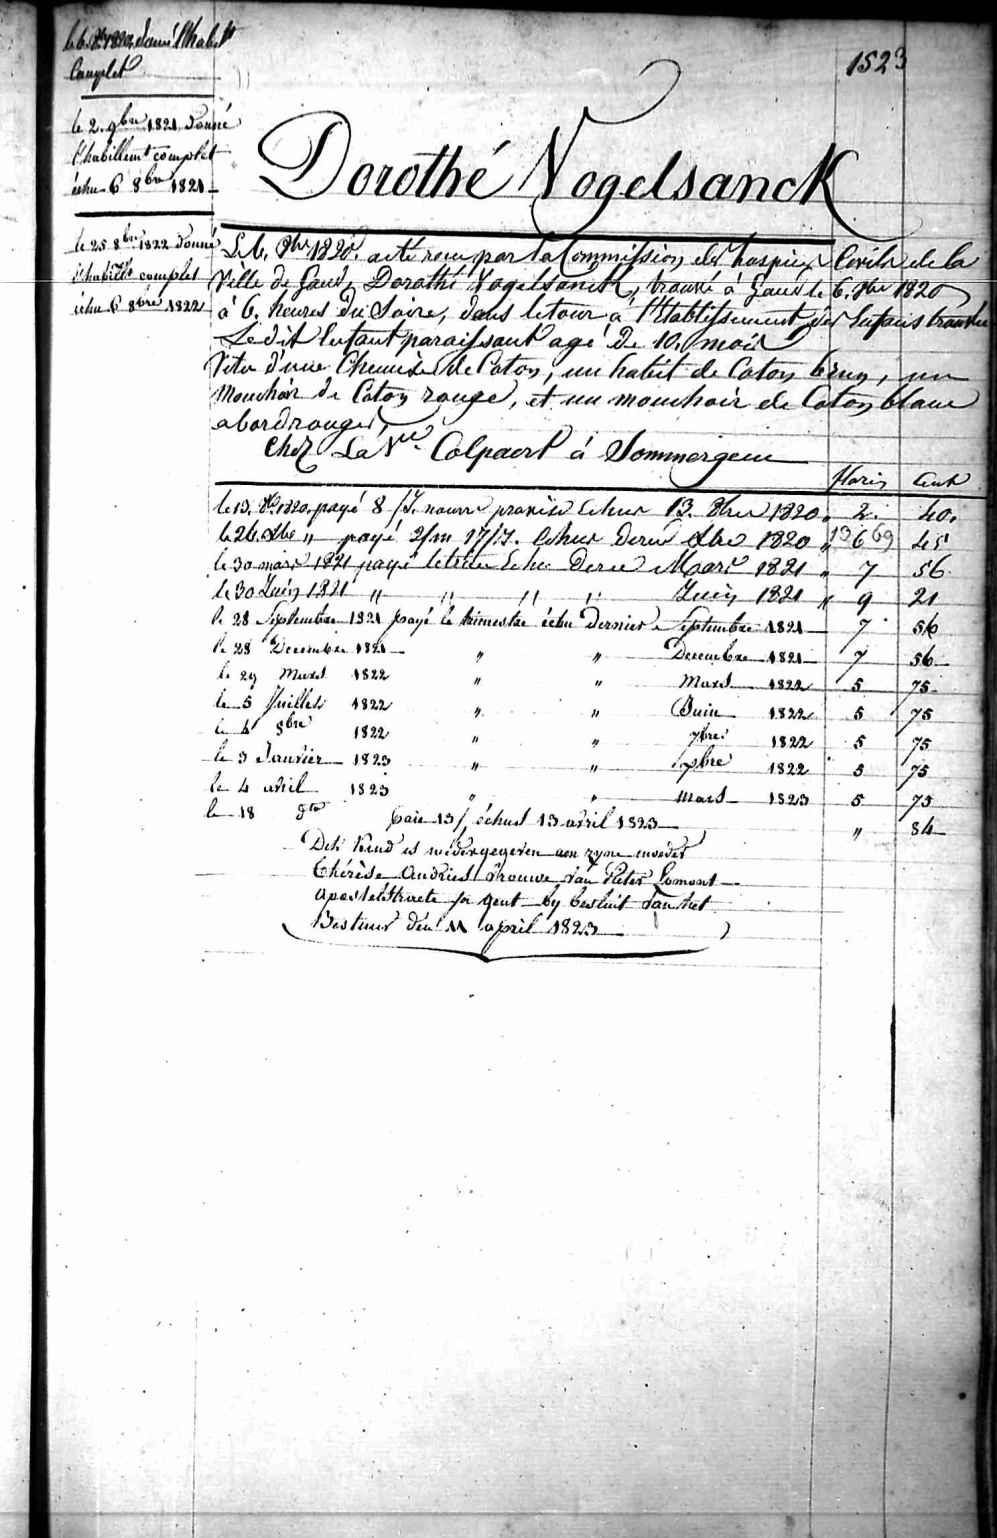 1523
le 6. 8bre 1820, donné l'habillt
Complet
le 2. 9bre 1821 donné
l'habillemt complet
échu 6 8bre 1821
le 25 8bre 1822 donné
l'habillt complet
échu 6 8bre 1822
Dorothé Vogelsanck
Le 6. 8bre 1820. a été reçu par la Commission des hospices Civils de la
Ville de Gand, Dorothé Vogelsanck, trouvé à Gand le 6. 8bre 1820
à 6. heures du Soire, dans le tour à l'Etablissement des Enfans trouvés
Le dit Enfant paraissant agé de 10. mois
Vetu d'une Chemise de Coton, un habit de Coton brun, un
Mouchoir de Coton rouge, et un mouchoir de Coton blanc
a bord rouges,
Chez La Ve. Colpaert à Sommergem
florin Cent
le 13. 8bre 1820. payé 8/J. nourre provisre Echus 13. 8bre 1820 " 2. 40.
le 26. Xbre " payé 2/m 17/J. Echus derer Xbre 1820 " 13 6 69 45
le 30 mars 1821 payé le trime Echu derer Mars 1821 " 7 56
le 30 Juin 1821 " " " " Juin 1821 " 9 21
le 28 Septembre 1821 payé le trimestre échu dernier Septembre 1821 7 56
le 28 Decembre 1821 " " Decembre 1821 7 56
le 29 Mars 1822 " " Mars 1822 5 75
le 5 Juillet 1822 " " Juin 1822 5 75
le 4 8bre 1822 " " 7bre 1822 5 75
le 3 Janvier 1823 " " Xbre 1822 5 75
le 4 avril 1823 " " Mars 1823 5 75
le 18 dto paié 13/J échus 13 avril 1823 " 84
Dit kind is wedergegeven aen zyne moeder
Thérèse Andries vrouwe van Pieter Lomont
apostelstraete in gent by besluit van het
Bestuur den 11 april 1823